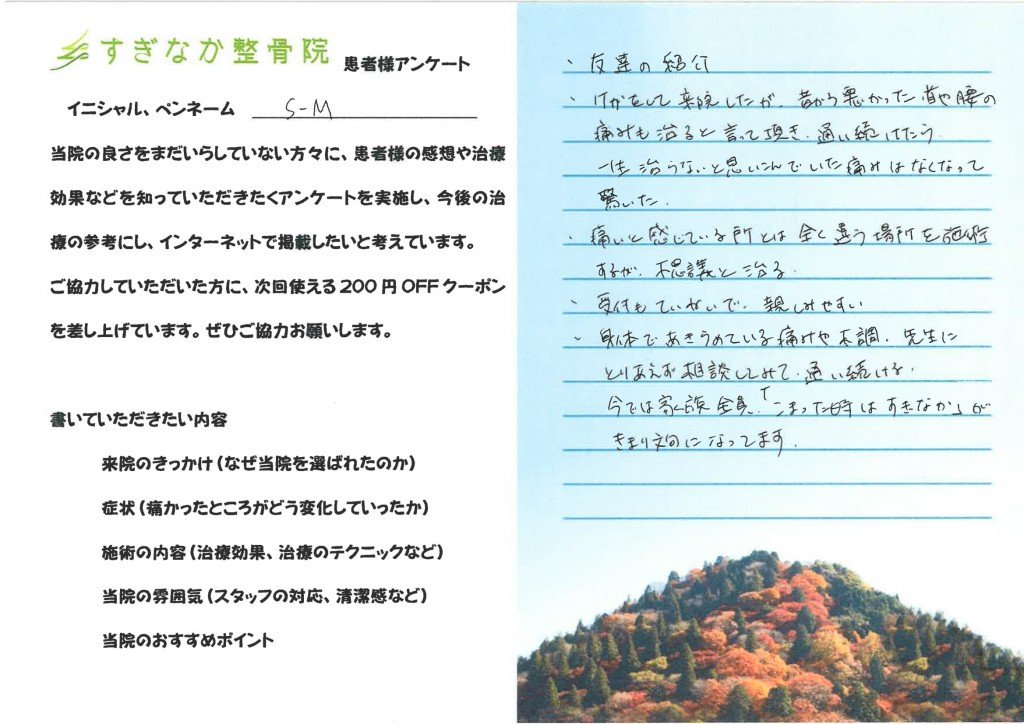 すぎなか整骨院 患者様アンケート
イニシャル、ペンネーム S-M
当院の良さをまだいらしていない方々に、患者様の感想や治療
効果などを知っていただきたくアンケートを実施し、今後の治
療の参考にし、インターネットで掲載したいと考えています。
ご協力していただいた方に、次回使える200円OFFクーポン
を差し上げています。ぜひご協力お願いします。
書いていただきたい内容
来院のきっかけ（なぜ当院を選ばれたのか）
症状（痛かったところがどう変化していったか）
施術の内容（治療効果、治療のテクニックなど）
当院の雰囲気（スタッフの対応、清潔感など）
当院のおすすめポイント
・友達の紹介
・けがをして来院したが、昔から悪かった首や腰の
痛みも治ると言って頂き、通い続けたら
一生治らないと思いこんでいた痛みはなくなって
驚いた。
・痛いと感じている所とは全く違う場所を施術
するが、不思議と治る。
・受付もていねいで、親しみやすい
・身体であきらめている痛みや不調、先生に
とりあえず相談してみて、通い続ける。
今では家族全員「こまった時はすぎなか」が
きまり文句になってます。